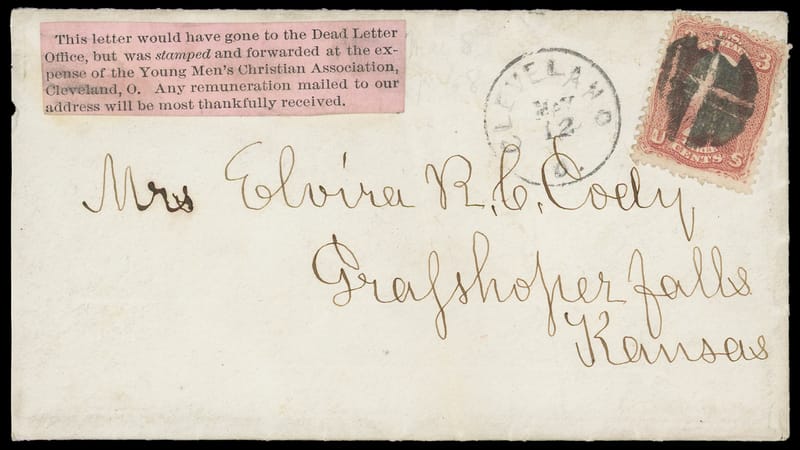 This letter would have gone to the Dead Letter
Office, but was stamped and forwarded at the ex-
pense of the Young Men's Christian Association,
Cleveland, O. Any remuneration mailed to our
address will be most thankfully received.
CLEVELAND
MAY
12
O.
3
U S
CENTS
Mrs Elvira R. C. Cody
Grasshoper falls
Kansas